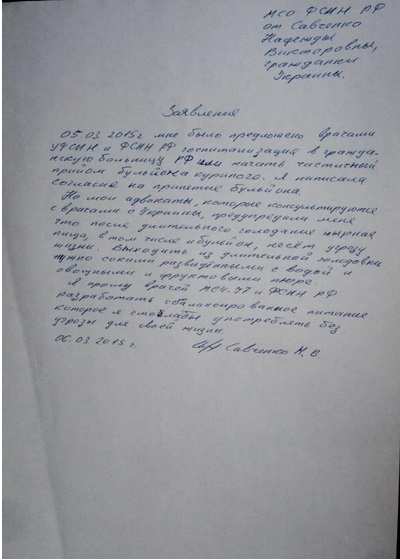 МСО ФСИН РФ
от Савченко
Надежды
Викторовны,
гражданки
Украины.
Заявление
05.03.2015г мне было предложено врачами
УФСИН и ФСИН РФ госпитализация в граждан-
скую больницу РФ или начать частичный
приём бульйона куриного. Я написала
согласие на принятие бульйона.
Но мои адвокаты, которые консультируются
с врачами с Украины, предупредили меня
что после длительного голодания жирная
пища, в том числе и бульйон, несёт угрозу
жизни. Выходить из длительной голодовки
нужно соками разведёнными с водой и
овощными и фруктовыми пюре.
Я прошу врачей МСЧ-77 и ФСИН РФ
разработать сбалансированное питание
которое я смогла бы употреблять без
угрозы для своей жизни.
06.03.2015г. Савченко Н. В.